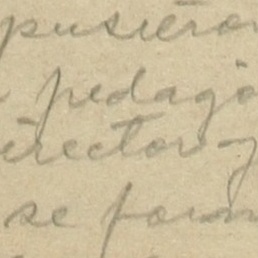 pusieron
pedagó
irector y
se form